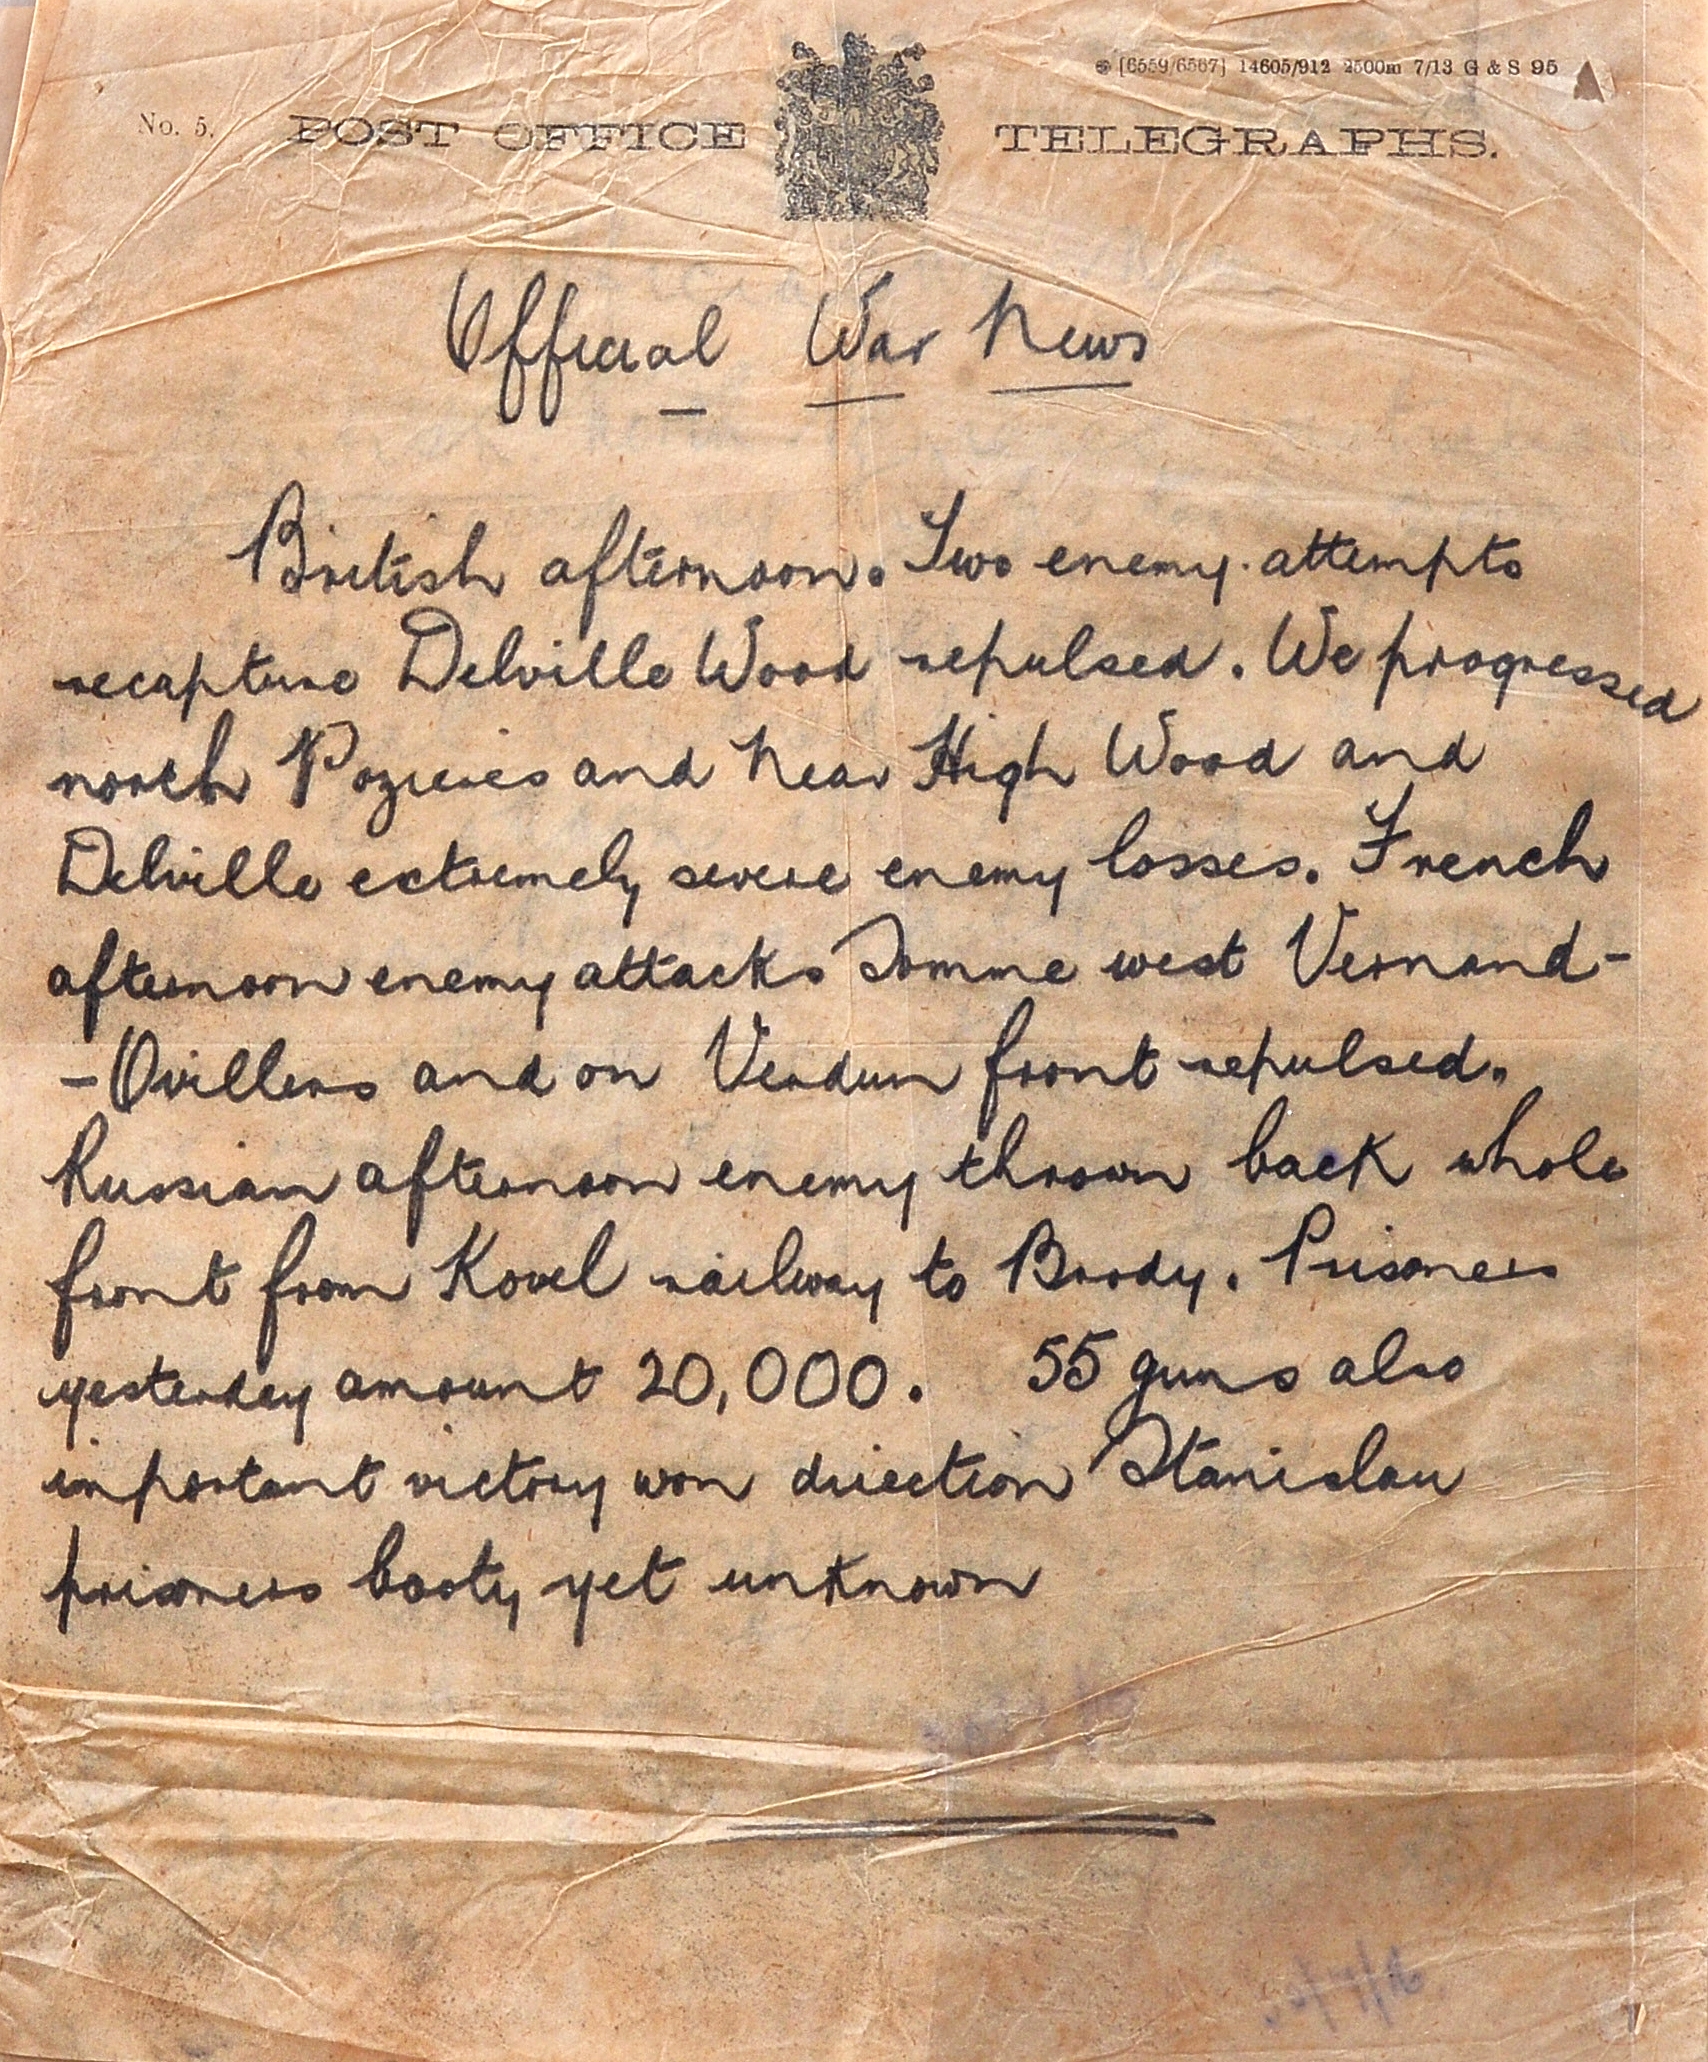 [6559/6567] 14605/912 2500m 7/13 G & S 95
No. 5. POST OFFICE TELEGRAPHS.
Official War News
British afternoon. Two enemy attempts
recapture Delville Wood repulsed. We progressed
north Pozieres and near High Wood and
Delville extremely severe enemy losses. French
afternoon enemy attacks Somme west Vermand-
-Ovillers and on Verdun front repulsed.
Russian afternoon enemy thrown back whole
front from Kovel railway to Brody. Prisoners
yesterday amount 20,000. 55 guns also
important victory won direction Stanislau
prisoners booty yet unknown